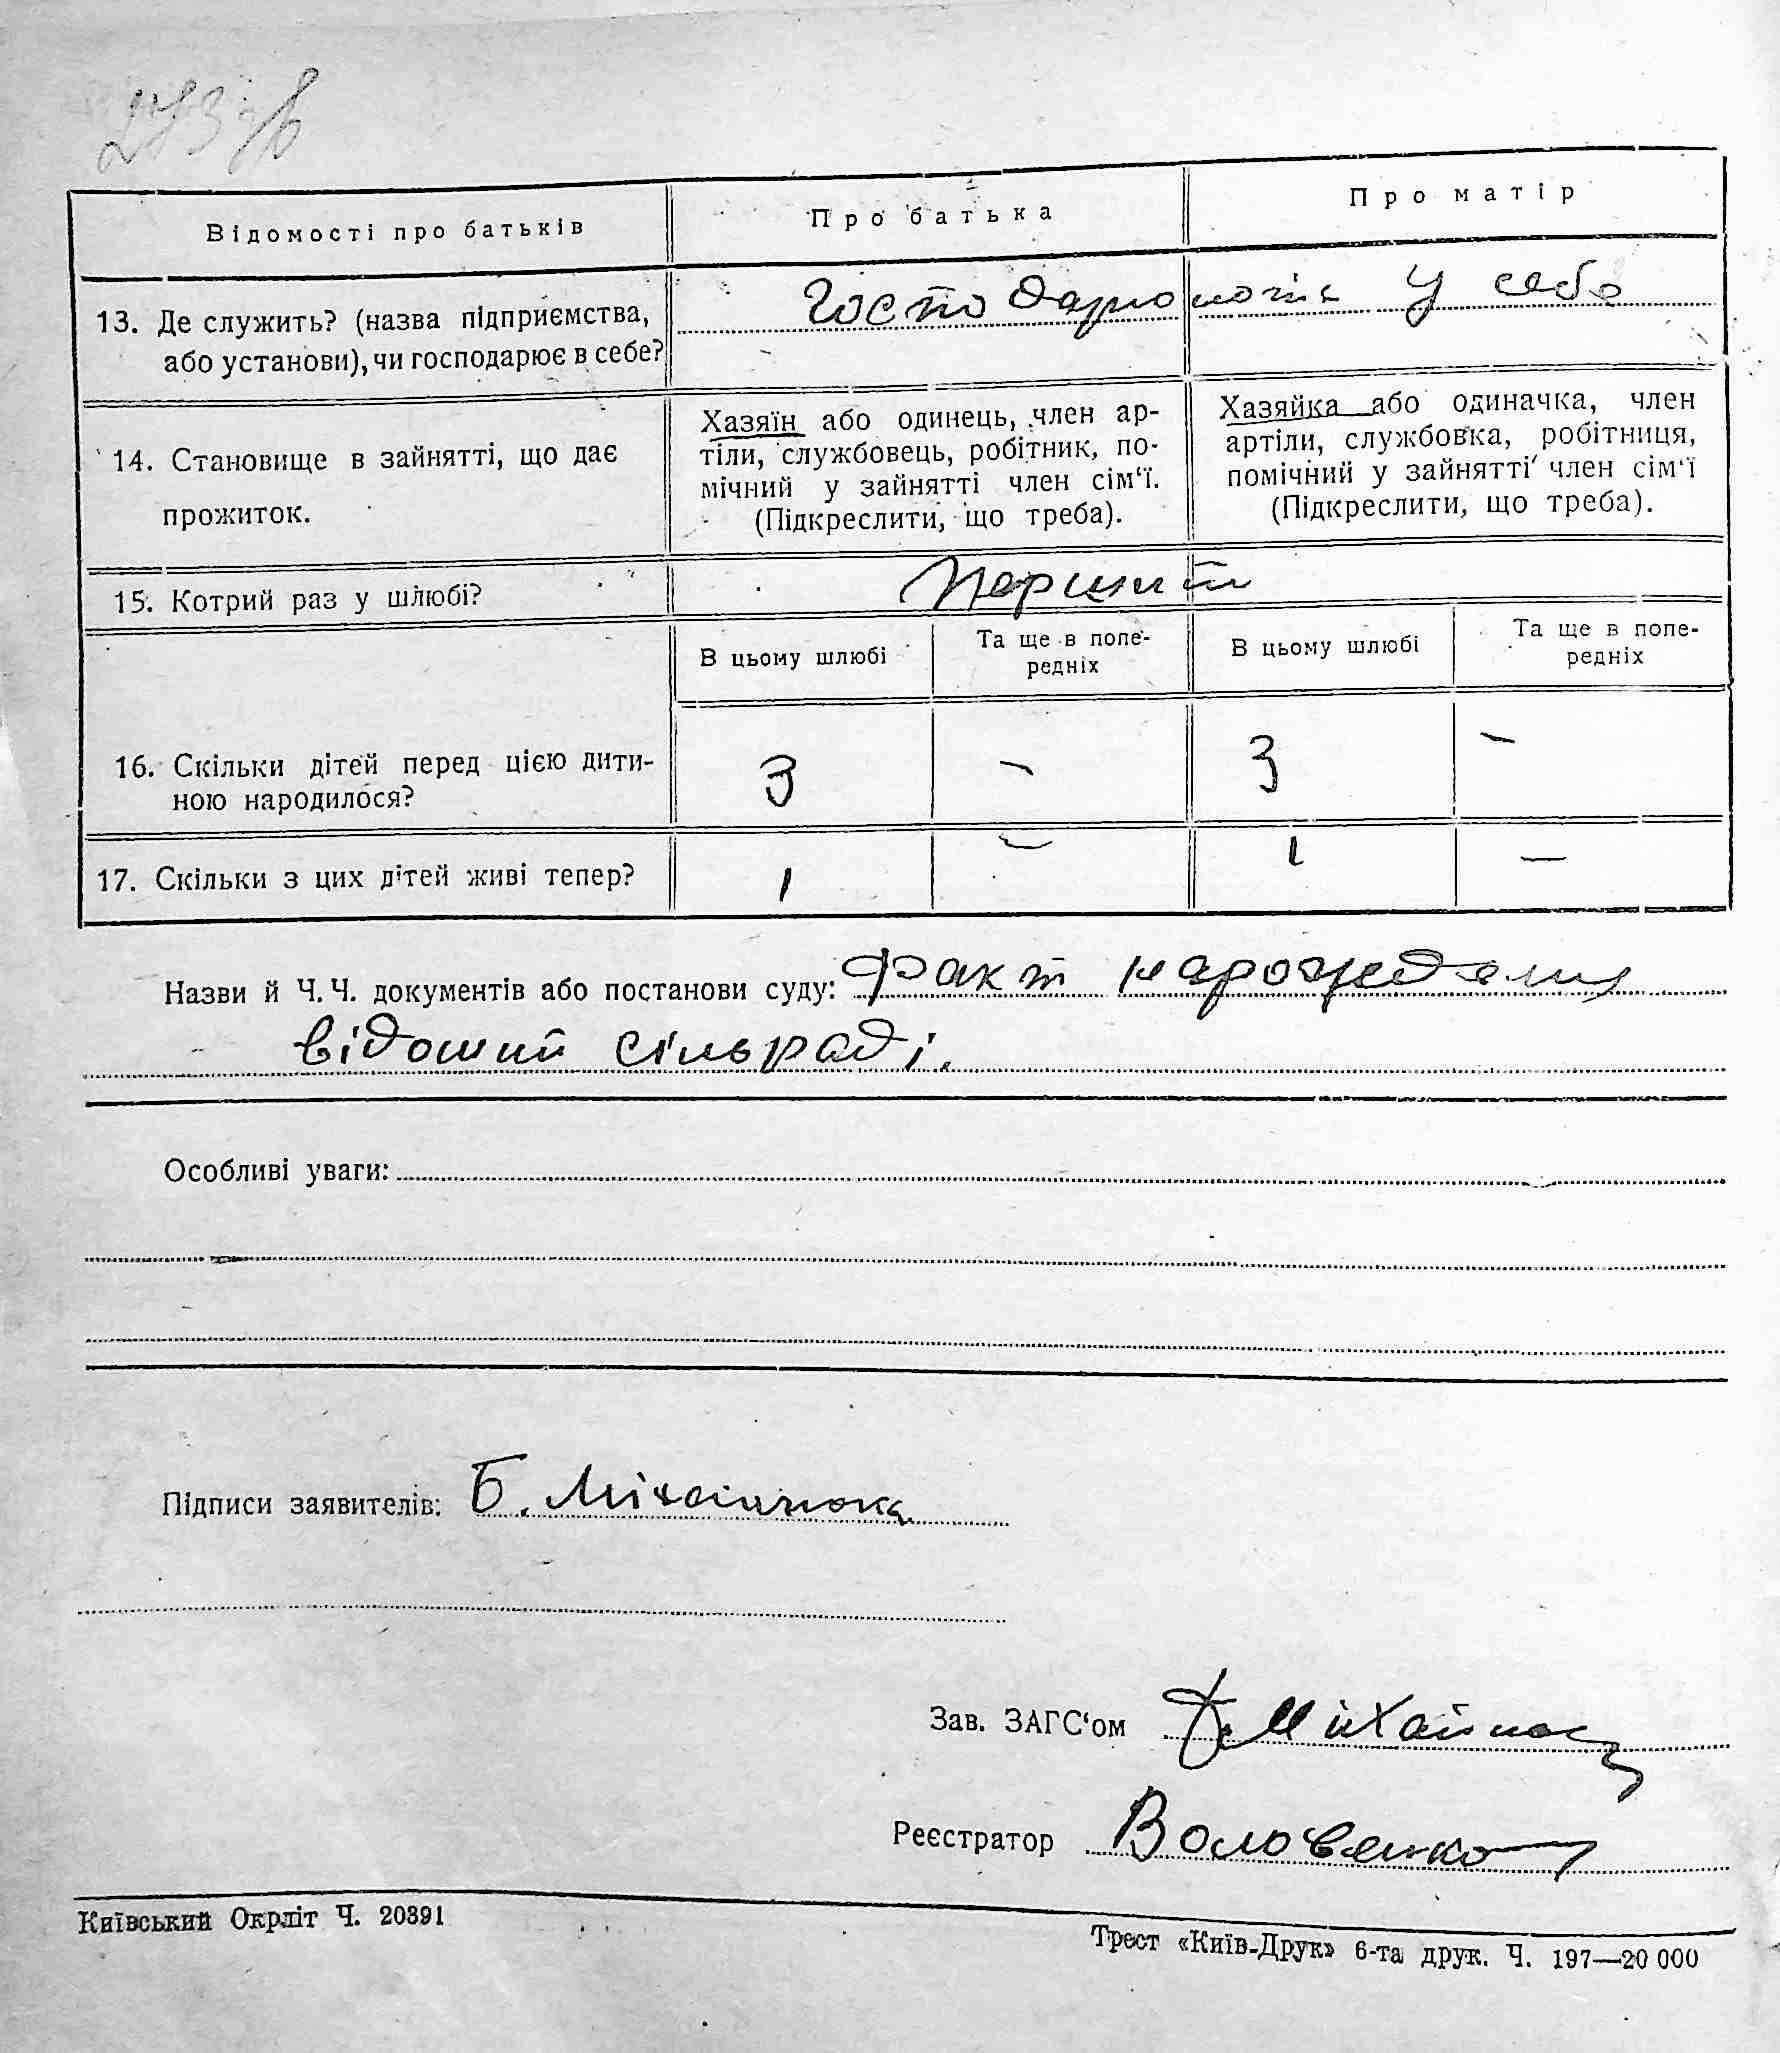 273 зв
Відомості про батьків
Про батька
Про матір
13. Де служить? (назва підприємства,
або установи), чи господарює в себе?
Господарюють у себе
14. Становище в зайнятті, що дає
прожиток.
Хазяїн або одинець, член ар-
тіли, службовець, робітник, по-
мічний у зайнятті член сім'ї.
(Підкреслити, що треба).
Хазяйка або одиначка, член
артіли, службовка, робітниця,
помічний у зайнятті член сім'ї
(Підкреслити, що треба).
15. Котрий раз у шлюбі?
Перший
В цьому шлюбі
Та ще в попе-
редніх
В цьому шлюбі
Та ще в попе-
редніх
16. Скільки дітей перед цією дити-
ною народилося?
3 – 3 –
17. Скільки з цих дітей живі тепер?
1 – 1 –
Назви й Ч.Ч. документів або постанови суду: Факт народження
відомий сільраді.
Особливі уваги:
Підписи заявителів: Б.
Зав. ЗАГС'ом
Реєстратор Воловенко
Київський Окрліт Ч. 20391
Трест «Київ-Друк» 6-та друк. Ч. 197—20 000